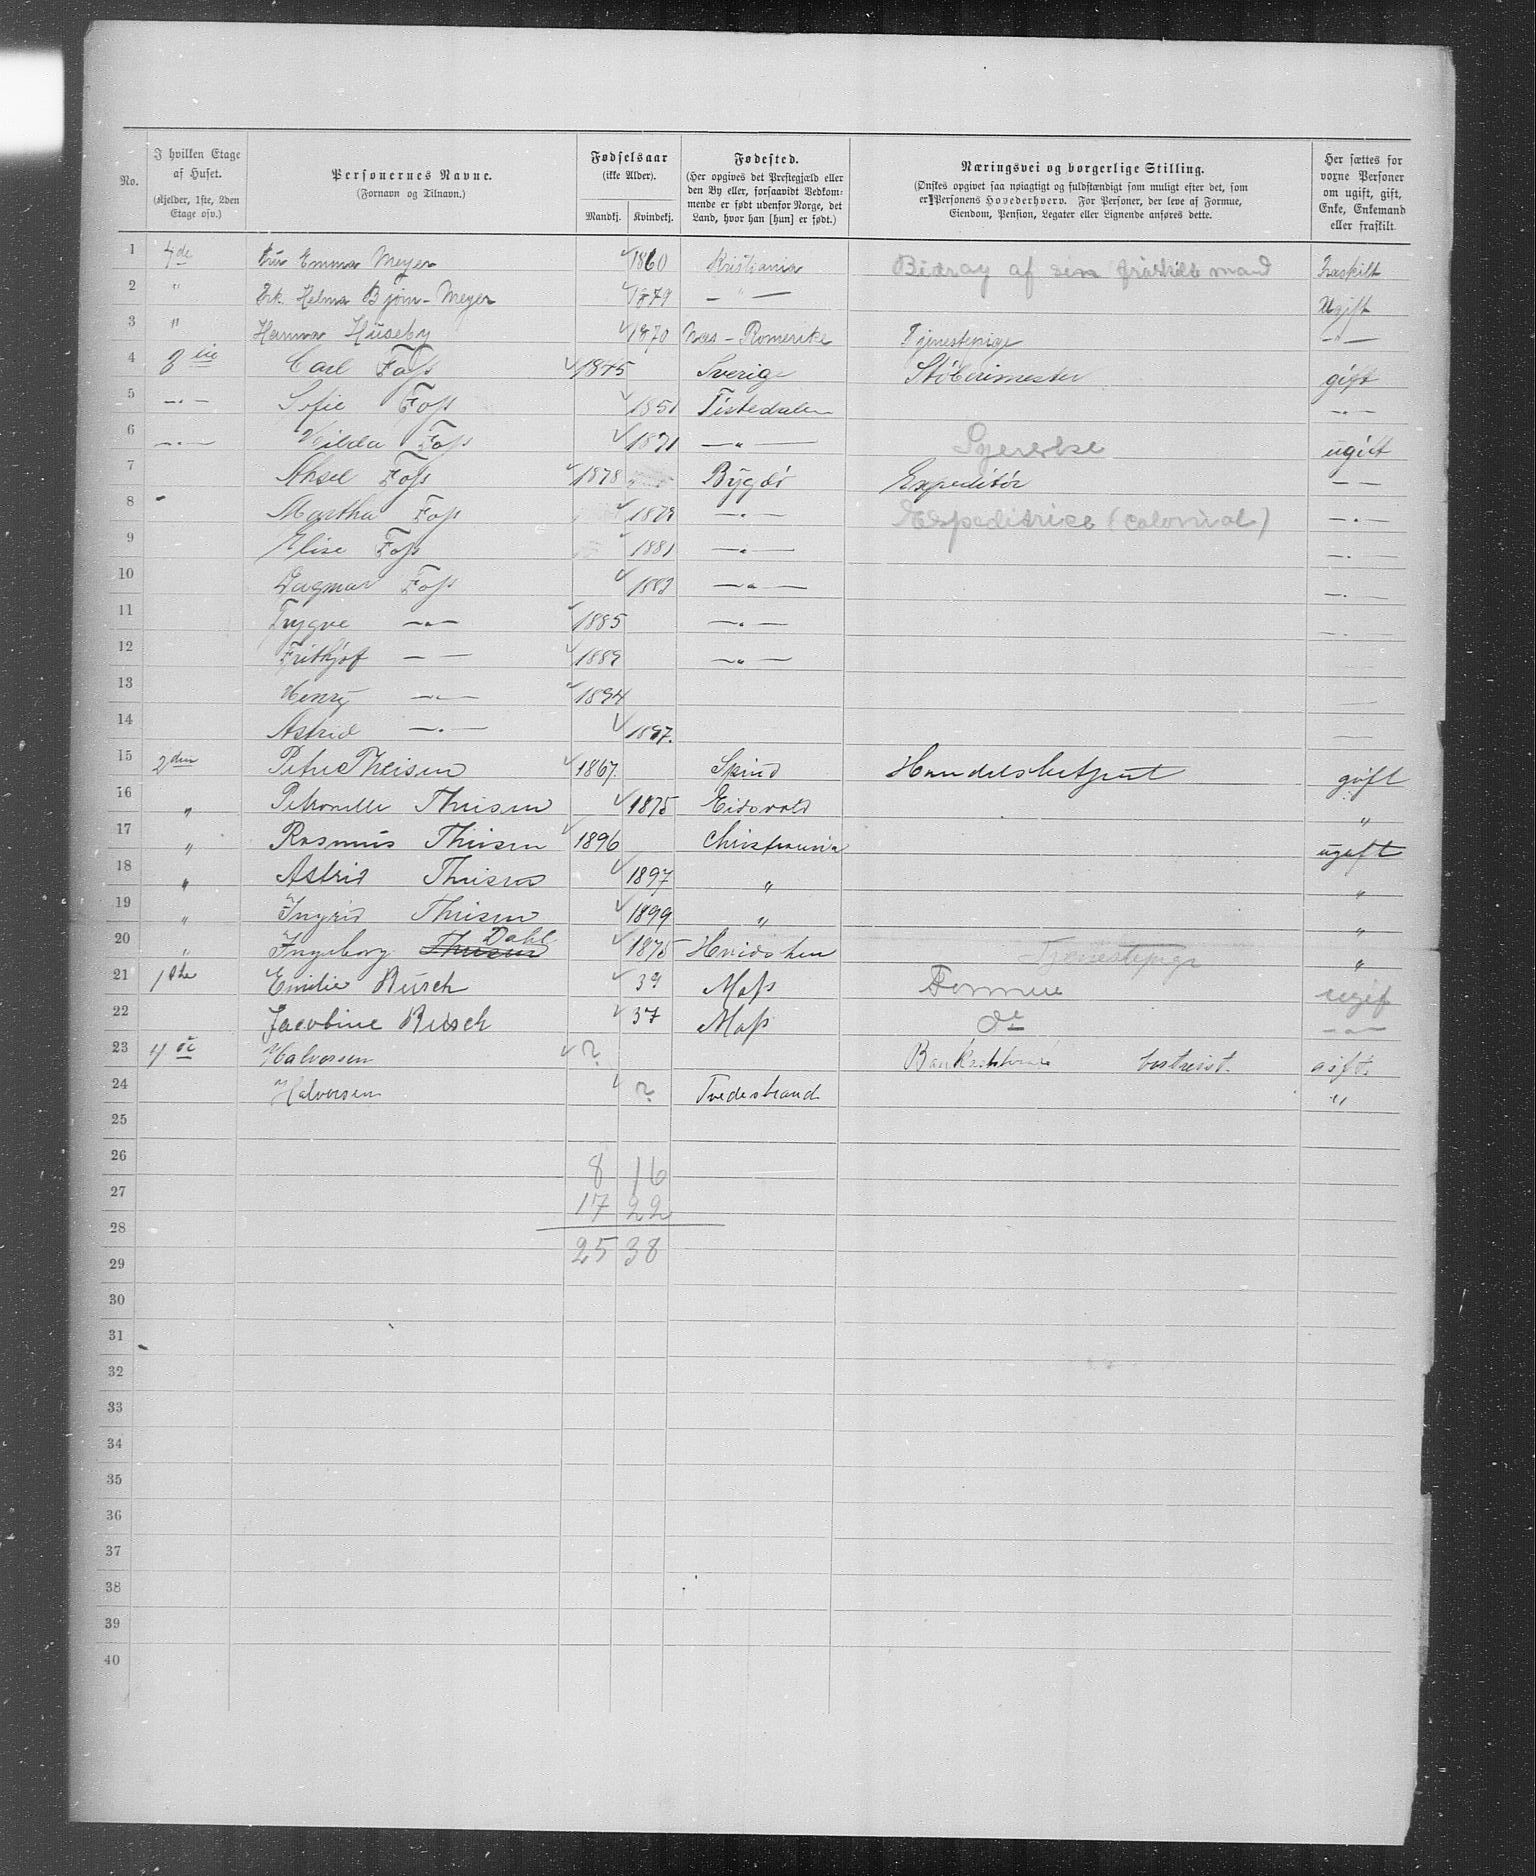 No. | I hvilken Etage af Huset. (Kjelder, 1ste, 2den Etage osv.) | Personernes Navne. (Fornavn og Tilnavn.) | Fødselsaar (ikke Alder). Mandkj. | Kvindekj. | Fødested. (Her opgives det Præstegjæld eller den By eller, forsaavidt Vedkommende er født udenfor Norge, det Land, hvor han [hun] er født.) | Næringsvei og borgerlige Stilling. (Ønskes opgivet saa nøiagtigt og fuldstændigt som muligt efter det, som er Personens Hovederhverv. For Personer, der leve af Formue, Eiendom, Pension, Legater eller Lignende anføres dette. | Her sættes for voxne Personer om ugift, gift, Enke, Enkemand eller fraskilt.
1 4de Fru Emma Meyer 1860 Kristiania Bidrag af sin fraskilte mand Fraskilt
2 " Frk. Helma Bjørn-Meyer 1879 — " — Ugift
3 " Hanna Huseby 1870 Næs - Romerike Tjenestepige — " —
4 3die Carl Foss 1845 Sverige Støberimester gift
5 — " — Sofie Foss 1851 Tistedalen — " —
6 — " — Hilda Foss 1871 — " — Syerske ugift
7 Aksel Foss 1878 Bygdø Expeditør — —
8 Martha Foss 1879 — " — Expeditrice (colonial) — " —
9 Elise Foss 1881 — " — — " —
10 Dagmar Foss 1883 — " — — " —
11 Trygve — " — 1885 — " — — " —
12 Frithjof — — 1889 — " —
13 Henry — " — 1894 —
14 Astrid — " — 1897. —
15 2den Peter Theisen 1867. Spind Handelsbetjent gift
16 " Petronelle Theisen 1875 Eidsvold "
17 " Rasmus Theisen 1896 Christiania ugift
18 " Astrid Theisen 1897 " "
19 " Ingrid Theisen 1899 " "
20 " Ingeborg Theisen Dahl 1875 Hvidsten Tjenestepige "
21 1ste Emilie Busch 39 Moss Formue ugift
22 Jacobine Busch 37 Moss do — " —
23 4de Halvorsen ? bortreist. gift.
24 Halvorsen ? Tvedestrand "
25
26 8 16
27 17 22
28
29 25 38
30
31
32
33
34
35
36
37
38
39
40